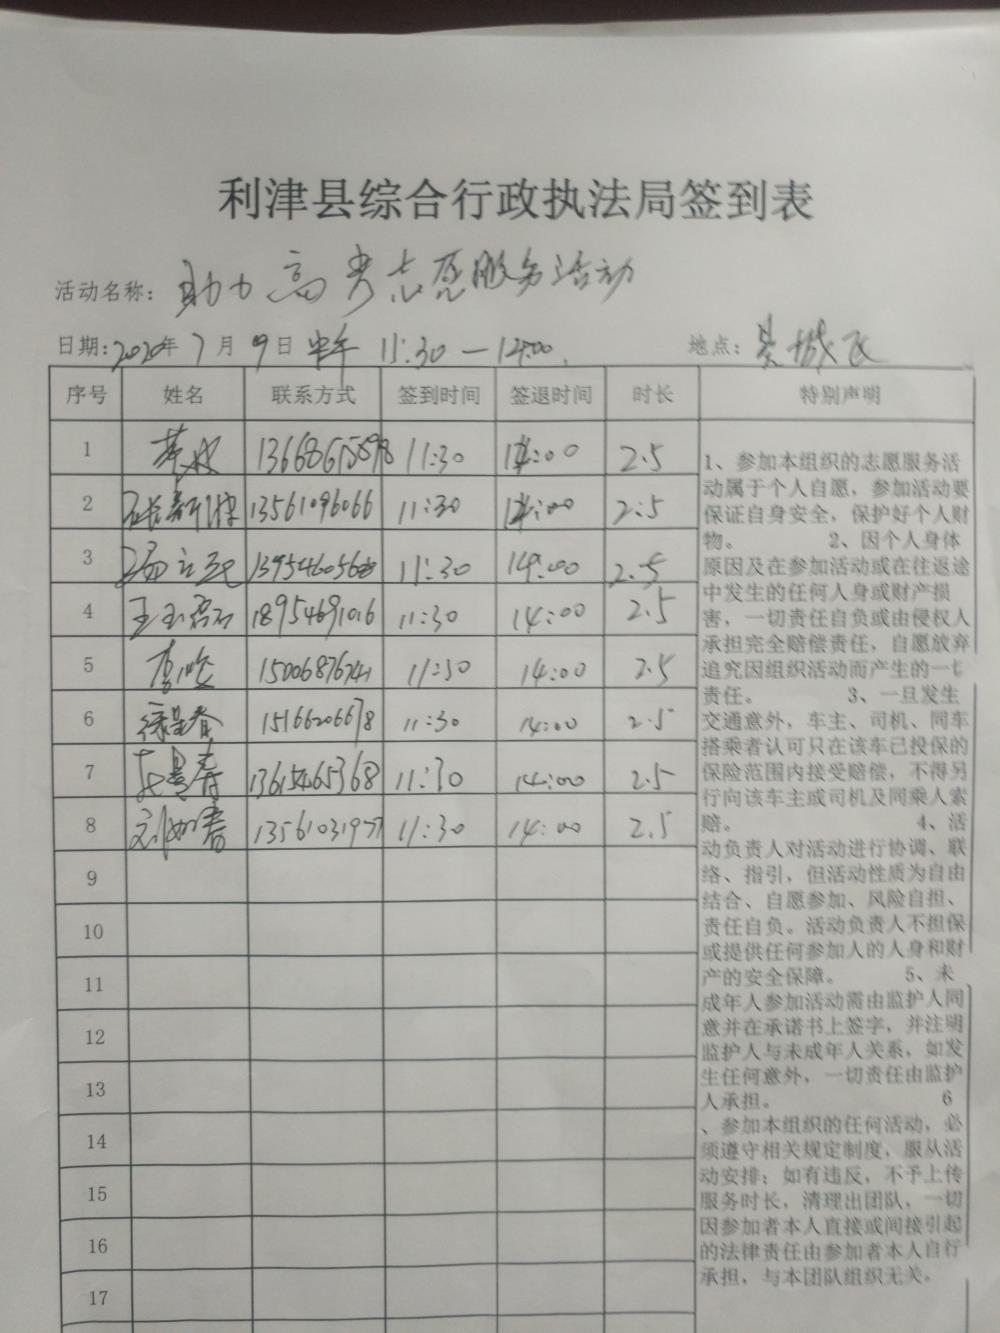 利津县综合行政执法局签到表
活动名称: 助力高考志愿服务活动
日期: 2020年7月9日 中午 11:30—14:00 地点:
序号 姓名 联系方式 签到时间 签退时间 时长 特别声明
1 11:30 14:00 2.5
2 13561096066 11:30 14:00 2.5
3 11:30 14:00 2.5
4 王玉磊 18954691016 11:30 14:00 2.5
5 11:30 14:00 2.5
6 15166206678 11:30 14:00 2.5
7 13615465368 11:30 14:00 2.5
8 刘如春 11:30 14:00 2.5
9
10
11
12
13
14
15
16
17
1、参加本组织的志愿服务活
动属于个人自愿，参加活动要
保证自身安全，保护好个人财
物。 2、因个人身体
原因及在参加活动或在往返途
中发生的任何人身或财产损
害，一切责任自负或由侵权人
承担完全赔偿责任，自愿放弃
追究因组织活动而产生的一切
责任。 3、一旦发生
交通意外，车主、司机、同车
搭乘者认可只在该车已投保的
保险范围内接受赔偿，不得另
行向该车主或司机及同乘人索
赔。 4、活
动负责人对活动进行协调、联
络、指引，但活动性质为自由
结合、自愿参加、风险自担、
责任自负。活动负责人不担保
或提供任何参加人的人身和财
产的安全保障。 5、未
成年人参加活动需由监护人同
意并在承诺书上签字，并注明
监护人与未成年人关系，如发
生任何意外，一切责任由监护
人承担。 6
、参加本组织的任何活动，必
须遵守相关规定制度，服从活
动安排；如有违反，不予上传
服务时长，清理出团队，一切
因参加者本人直接或间接引起
的法律责任由参加者本人自行
承担，与本团队组织无关。